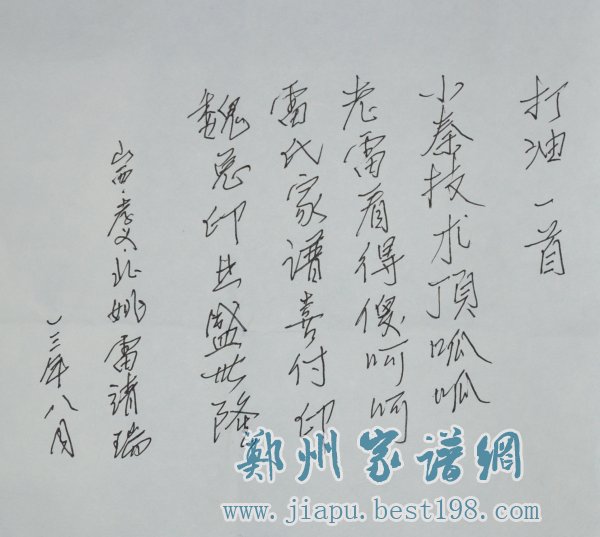 打油一首
小秦技术顶呱呱
老雷看得傻呵呵
雷氏家谱喜付印
魏总印出盛世隆
山西·孝义·北姚雷靖瑞
一三年八月
鄭州家谱網
www.jiapu.best198.com